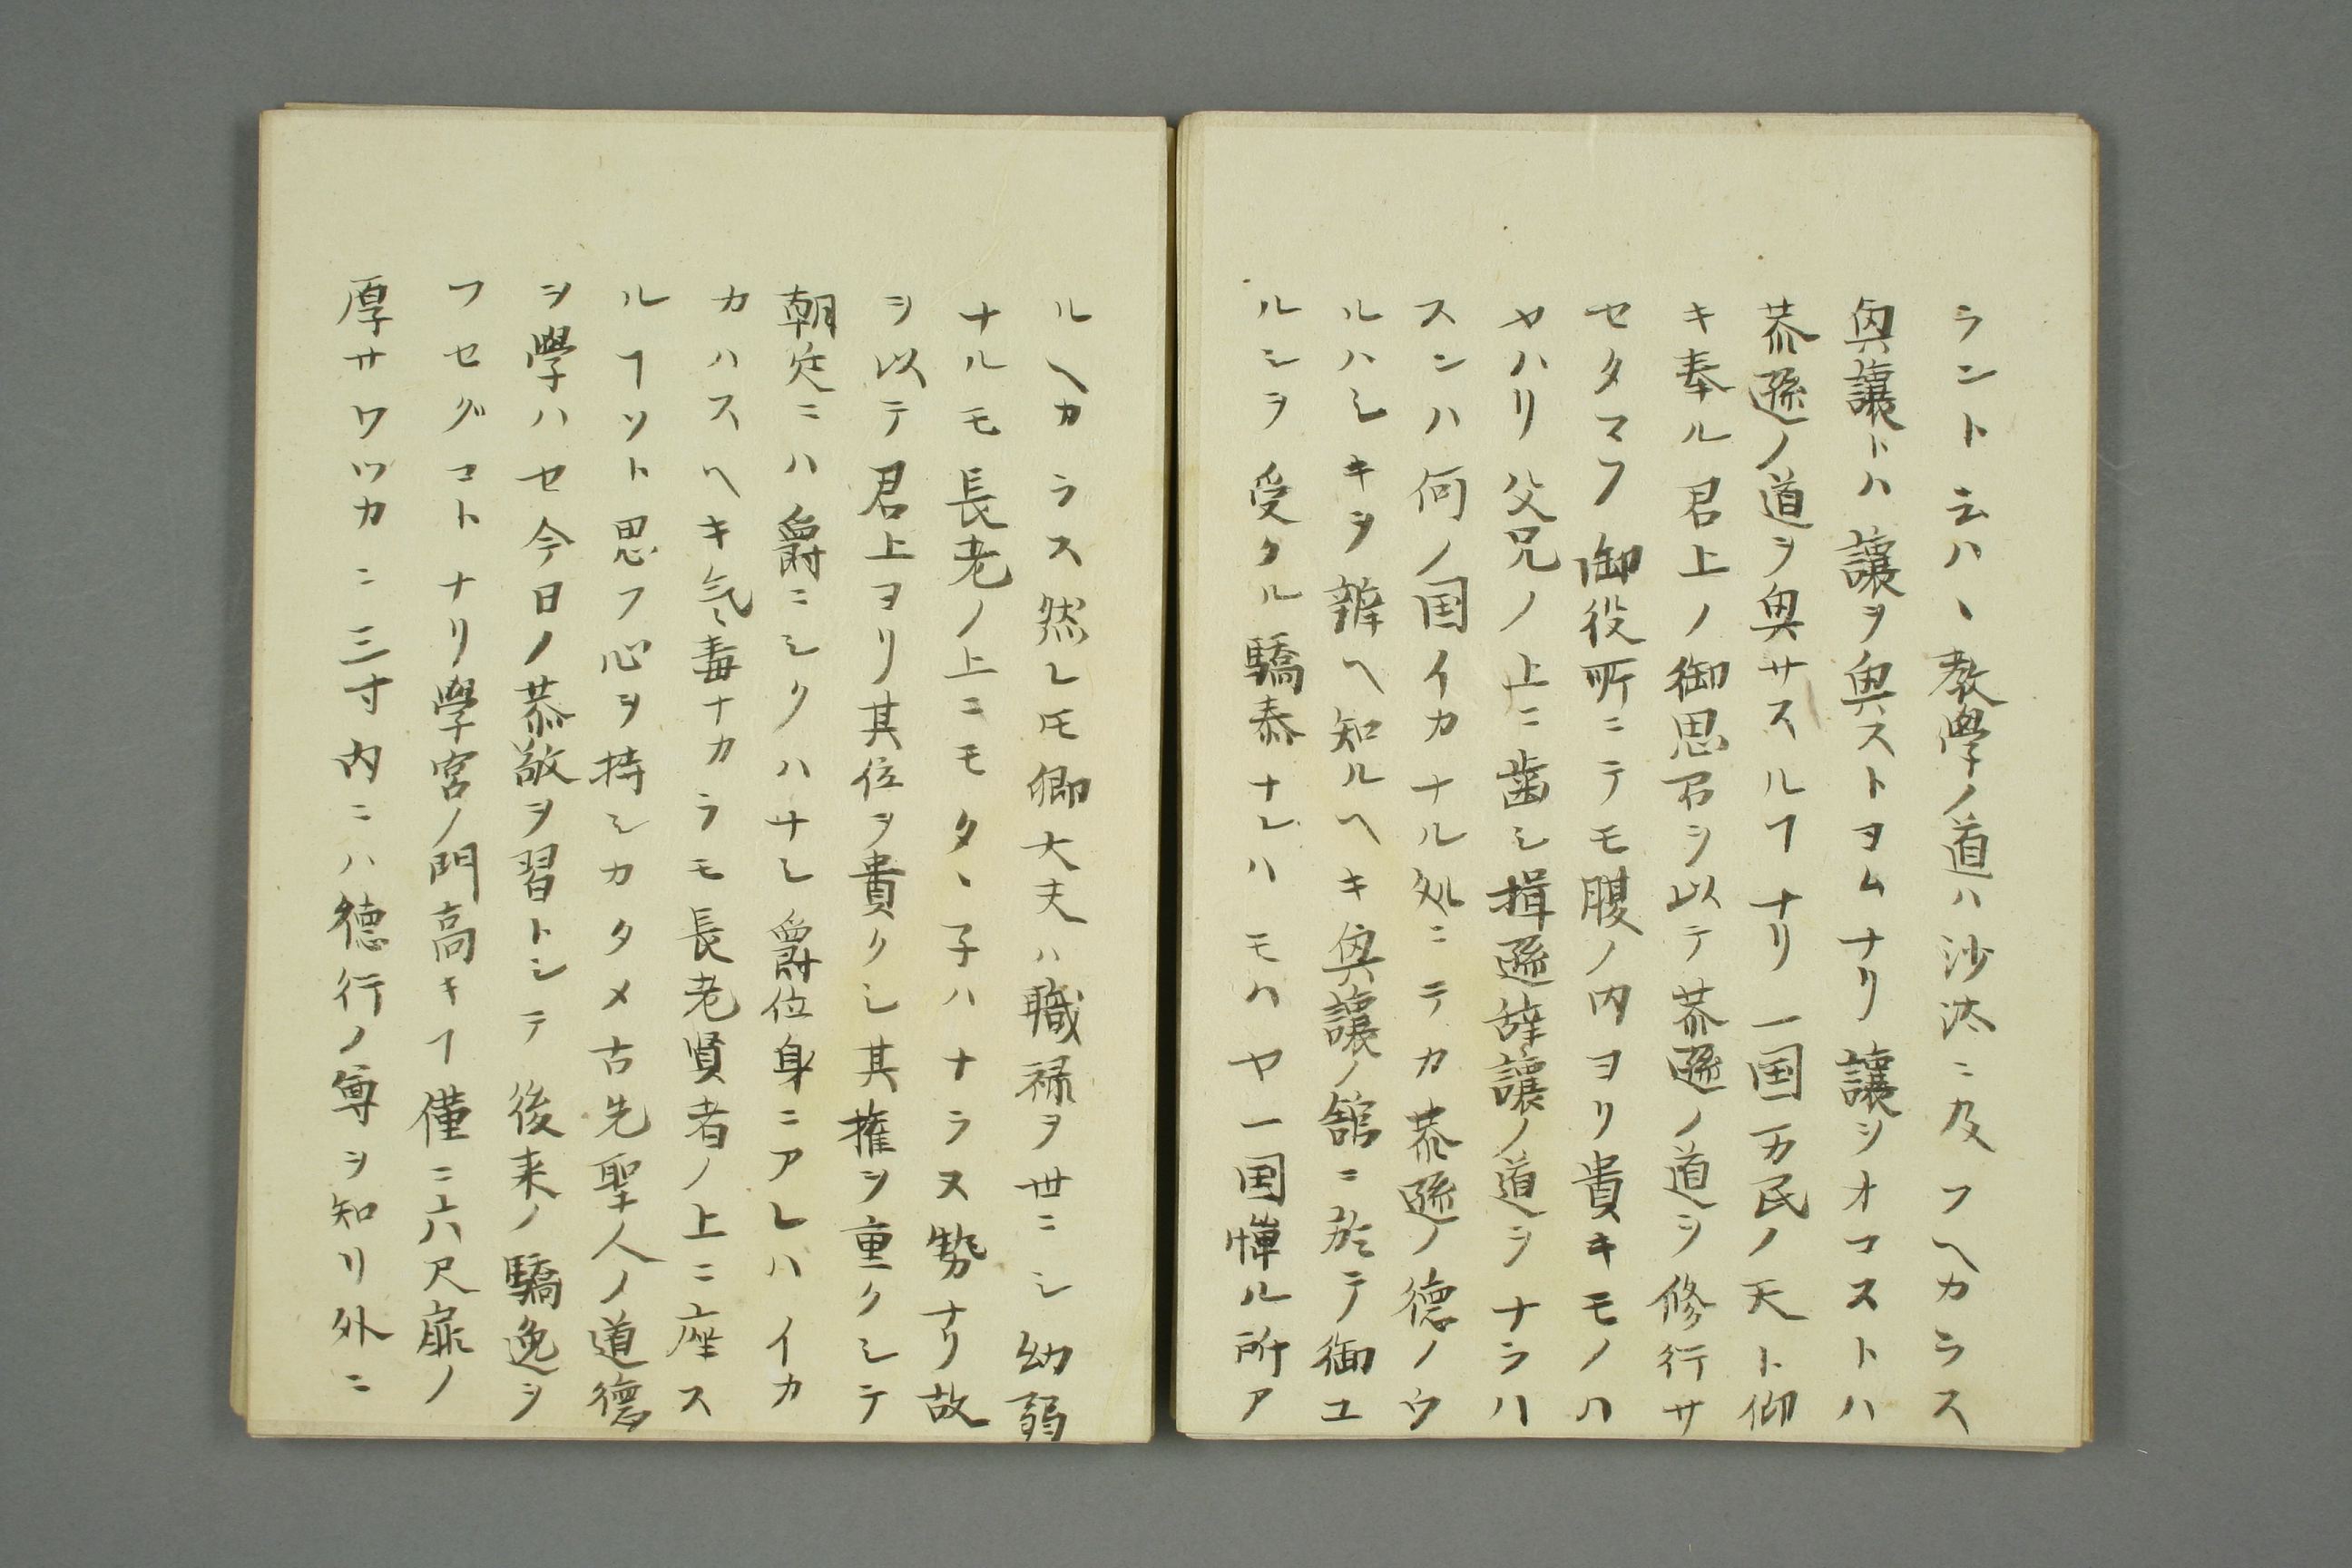 ラント云ハヽ教學ノ道ハ沙汰ニ及フヘカラス
與讓トハ讓ヲ與ストヨムナリ讓ヲオコストハ
恭遜ノ道ヲ與サスルヿナリ一国万民ノ天ト仰
キ奉ル君上ノ御思召ヲ以テ恭遜ノ道ヲ修行サ
セタマフ御役所ニテモ腹ノ内ヨリ貴キモノハ
ヤハリ父兄ノ上ニ歯シ揖遜辞讓ノ道ヲナラハ
スンハ何ノ国イカナル処ニテカ恭遜ノ德ノウ
ルハシキヲ辨ヘ知ルヘキ與讓ノ舘ニ於テ御ユ
ルシヲ受クル驕泰ナレハモハヤ一国憚ル所ア
ルヘカラス然レ𪜈卿大夫ハ職禄ヲ世ニシ幼弱
ナルモ長老ノ上ニモタヽ子ハナラヌ勢ナリ故
ヲ以テ君上ヨリ其位ヲ貴クシ其権ヲ重クシテ
朝廷ニハ爵ニシクハナシ爵位身ニアレハイカ
カハスヘキ気毒ナカラモ長老賢者ノ上ニ座ス
ルヿソト思フ心ヲ持シカタメ古先聖人ノ道德
ヲ學ハセ今日ノ恭敬ヲ習トシテ後来ノ驕逸ヲ
フセグコトナリ學宮ノ門高キヿ僅ニ六尺扉ノ
厚サワツカニ三寸内ニハ德行ノ尊ヲ知リ外ニ